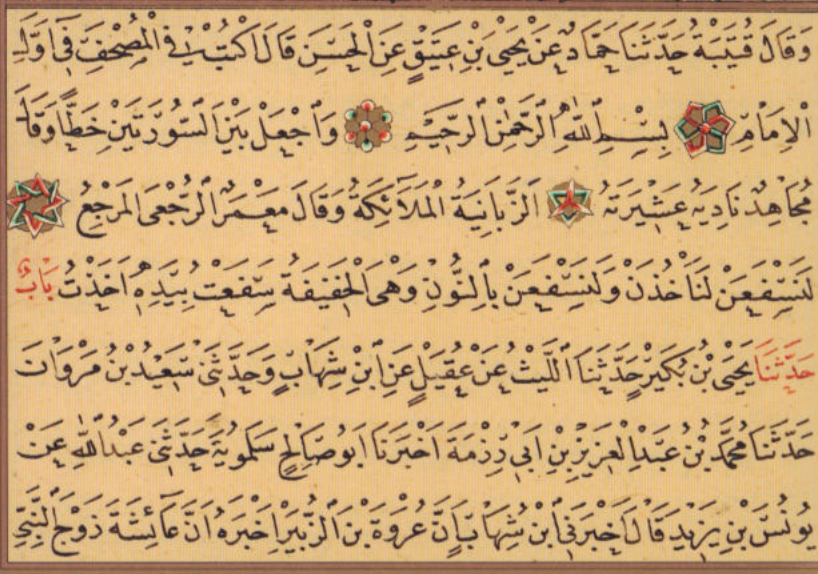 وَقَالَ قُتَيْبَةُ حَدَّثَنَا حَمَّادٌ عَنْ يَحْيَى بْنِ عَتِيقٍ عَنِ الْحَسَنِ قَالَ اكْتُبْ فِي الْمُصْحَفِ فِي اَوَّلِ
الْاِمَامِ بِسْمِ اللهِ الرَّحْمٰنِ الرَّحِيمِ وَاجْعَلْ بَيْنَ السُّورَتَيْنِ خَطًّا وَقَالَ
مُجَاهِدٌ نَادِيَهُ عَشِيرَتَهُ الزَّبَانِيَةُ الْمَلَائِكَةُ وَقَالَ مَعْمَرٌ الرُّجْعَى الْمَرْجِعُ
لَنَسْفَعَنْ لَنَأْخُذَنْ وَلَنَسْفَعَنْ بِالنُّونِ وَهْيَ الْخَفِيفَةُ سَفَعْتُ بِيَدِهِ اَخَذْتُ بَابٌ
حَدَّثَنَا يَحْيَى بْنُ بُكَيْرٍ حَدَّثَنَا اللَّيْثُ عَنْ عُقَيْلٍ عَنِ ابْنِ شِهَابٍ وَحَدَّثَنِي سَعِيدُ بْنُ مَرْوَانَ
حَدَّثَنَا مُحَمَّدُ بْنُ عَبْدِ الْعَزِيزِ بْنِ اَبِي رِزْمَةَ اَخْبَرَنَا اَبُو صَالِحٍ سَلْمُويَةُ حَدَّثَنِي عَبْدُ اللهِ عَنْ
يُونُسَ بْنِ يَزِيدَ قَالَ اَخْبَرَنِي ابْنُ شِهَابٍ اَنَّ عُرْوَةَ بْنَ الزُّبَيْرِ اَخْبَرَهُ اَنَّ عَائِشَةَ زَوْجَ النَّبِيِّ